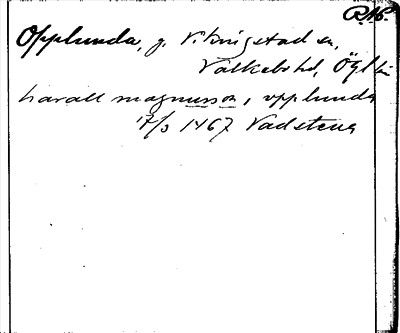 RAp.
Opplunda, g. Vibrigstad sn,
Valkebo hd, Ögl län
haralt magnusson, upplunda
17/3 1467 Vadstena